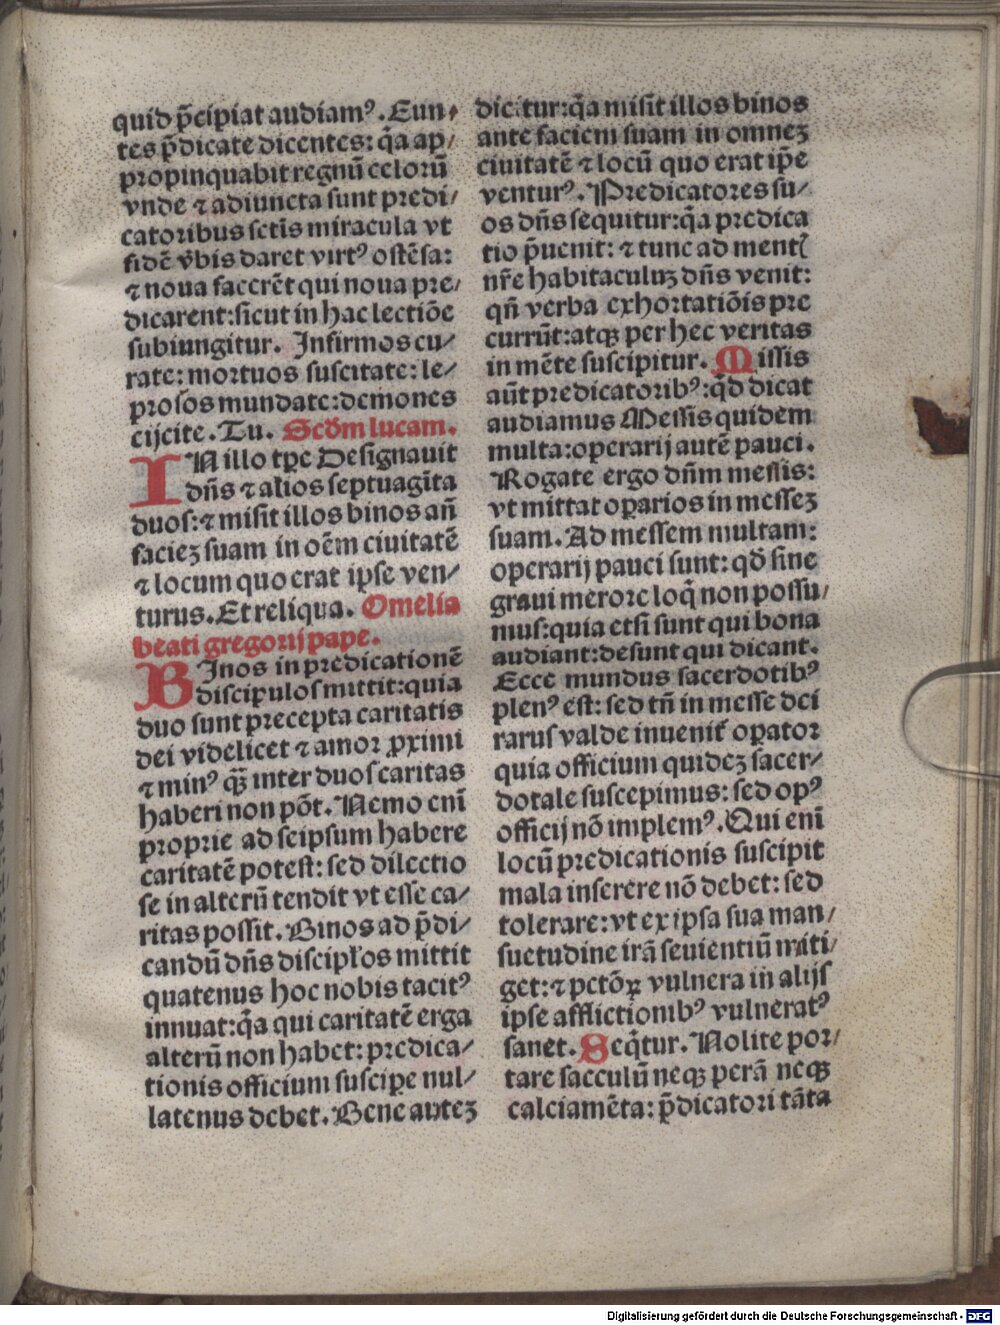 quid p̄cipiat audiamꝰ. Eun⸗
tes p̄dicate dicentes: q̄a ap⸗
propinquabit regnū celorū
vnde ⁊ adiuncta sunt predi⸗
catoribus sctīs miracula vt
fidē v̄bis daret virtꝰ ostēsa:
⁊ noua facerēt qui noua pre⸗
dicarent: sicut in hac lectiōe
subiungitur. Infirmos cu⸗
rate: mortuos suscitate: le⸗
prosos mundate: demones
eijcite. Tu. Scd̄m lucam.
IN illo tꝑe Designauit
dn̄s ⁊ alios septuagīta
duos: ⁊ misit illos binos an̄
faciez suam in oēm ciuitatē
⁊ locum quo erat ipse ven⸗
turus. Et reliqua. Omelia
beati gregorij pape.
BInos in predicationē
discipulos mittit: quia
duo sunt precepta caritatis
dei videlicet ⁊ amor ꝓximi
⁊ minꝰ qꝫ̄ inter duos caritas
haberi non pōt. Nemo enī
proprie ad seipsum habere
caritatē potest: sed dilectio
se in alterū tendit vt esse ca⸗
ritas possit. Binos ad p̄di⸗
candū dn̄s discipl̄os mittit
quatenus hoc nobis tacitꝰ
innuat: q̄a qui caritatē erga
alterū non habet: predica⸗
tionis officium suscipe nul⸗
latenus debet. Bene autez
dicitur: q̄a misit illos binos
ante faciem suam in omnez
ciuitatē ⁊ locū quo erat ip̄e
venturꝰ. Predicatores su⸗
os dn̄s sequitur: q̄a predica
tio p̄uenit: ⁊ tunc ad mentꝭ
nr̄e habitaculuz dn̄s venit:
qn̄ verba exhortatiōis pre
currūt: atqꝫ per hec veritas
in mēte suscipitur. Missis
aūt predicatoribꝰ: qd̄ dicat
audiamus Messis quidem
multa: operarij autē pauci.
Rogate ergo dn̄m messis:
vt mittat oꝑarios in messez
suam. Ad messem multam:
operarij pauci sunt: qd̄ sine
graui merore loq̄ non possu⸗
mus: quia etsi sunt qui bona
audiant: desunt qui dicant.
Ecce mundus sacerdotibꝰ
plenꝰ est: sed tn̄ in messe dei
rarus valde inuenit̄ oꝑator
quia officium quidez sacer⸗
dotale suscepimus: sed opꝰ
officij nō implemꝰ. Qui enī
locū predicationis suscipit
mala inferere nō debet: sed
tolerare: vt ex ipsa sua man⸗
suetudine irā seuientiū miti⸗
get: ⁊ pctōꝝ vulnera in alijs
ipse afflictionibꝰ vulneratꝰ
sanet. Seq̄tur. Nolite por⸗
tare sacculū neqꝫ perā neqꝫ
calciamēta: p̄dicatori tāta
Digitalisierung gefördert durch die Deutsche Forschungsgemeinschaft - DFG